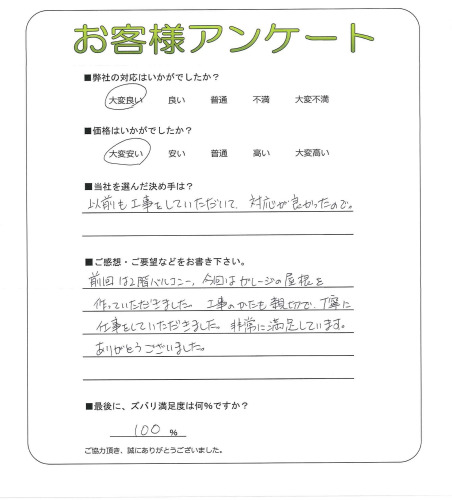 お客様アンケート
■弊社の対応はいかがでしたか?
大変良い 良い 普通 不満 大変不満
■価格はいかがでしたか?
大変安い 安い 普通 高い 大変高い
■当社を選んだ決め手は?
以前も工事をしていただいて、対応が良かったので。
■ご感想・ご要望などをお書き下さい。
前回は2階バルコニー、今回はガレージの屋根を
作っていただきました。工事のかたも親切で、丁寧に
仕事をしていただきました。非常に満足しています。
ありがとうございました。
■最後に、ズバリ満足度は何%ですか?
100 %
ご協力頂き、誠にありがとうございました。